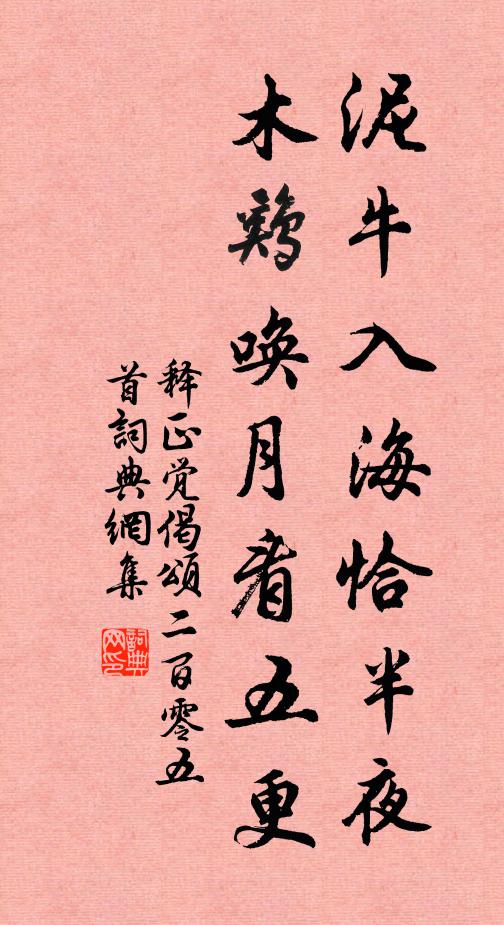 泥牛入海恰半夜
木鷄唤月看五更
释正觉偈頌二百零五
首詞典網集
詞典网印